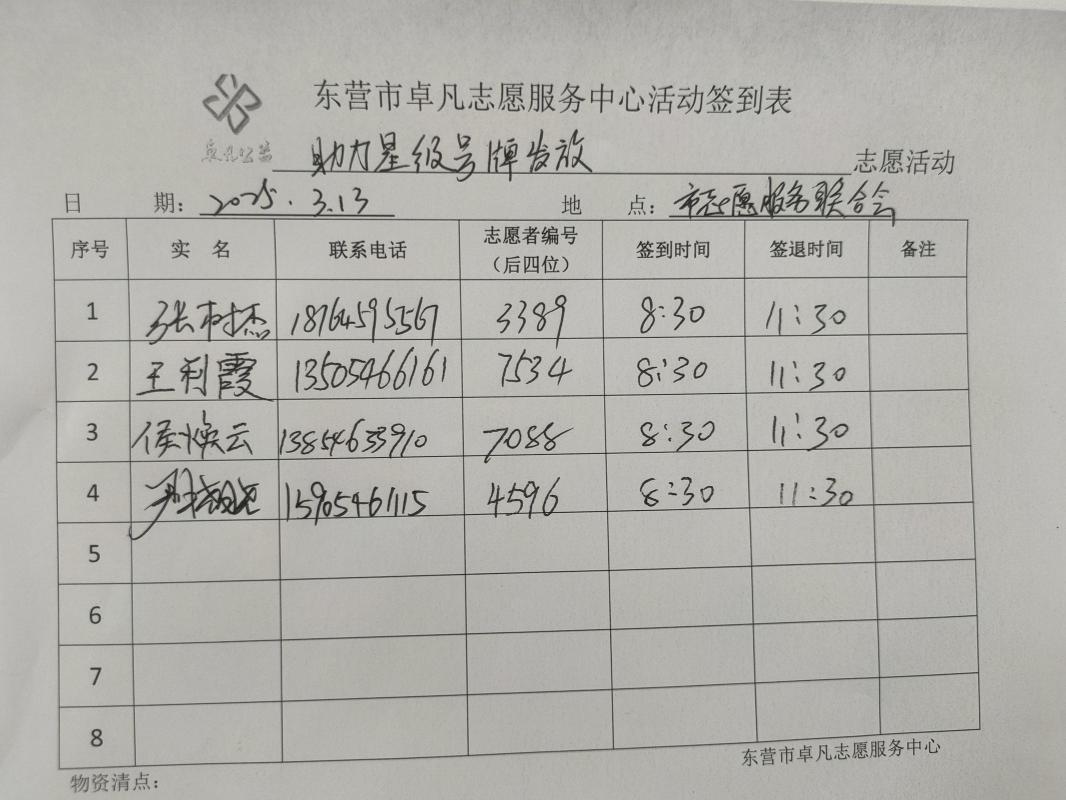 东营市卓凡志愿服务中心活动签到表
卓凡公益 助力星级号牌发放 志愿活动
日 期: 2025.3.13 地 点: 市志愿服务联合会
序号 实 名 联系电话 志愿者编号（后四位） 签到时间 签退时间 备注
1 张树杰 18764595567 3389 8:30 11:30
2 王利霞 13505466161 7534 8:30 11:30
3 侯焕云 13854633910 7088 8:30 11:30
4 15905461115 4596 8:30 11:30
5
6
7
8
物资清点： 东营市卓凡志愿服务中心